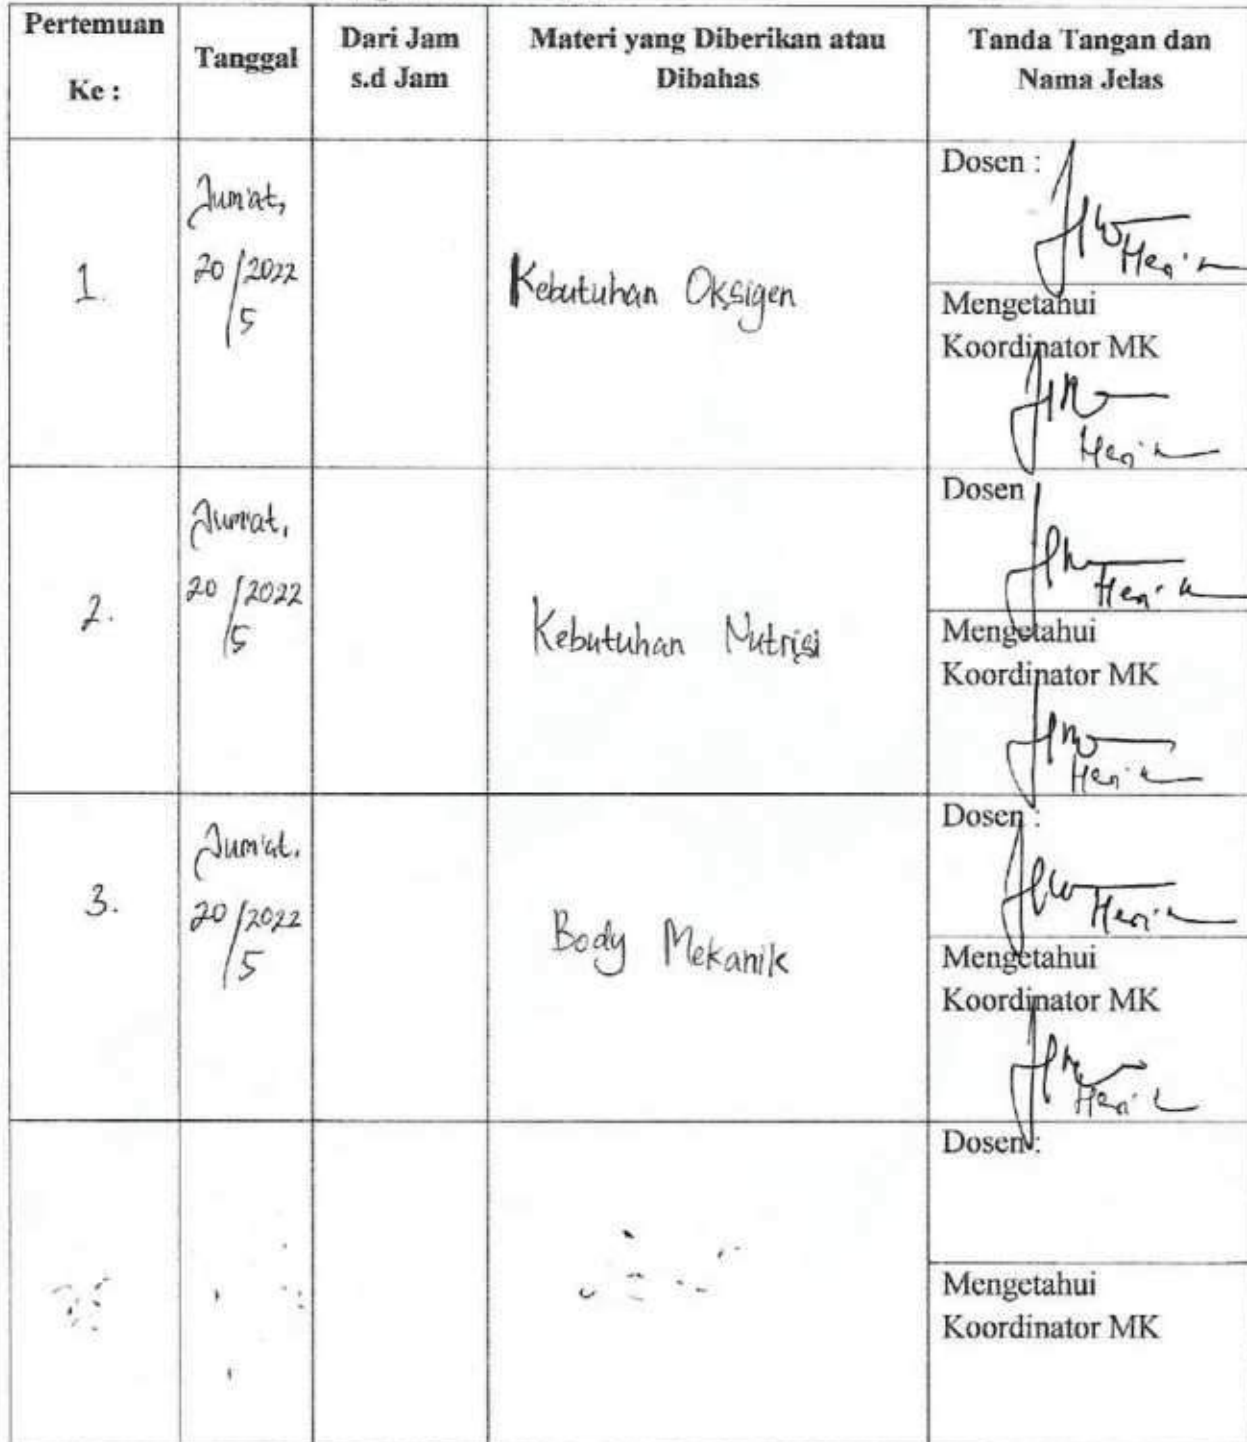 Pertemuan
Ke :
Tanggal
Dari Jam
s.d Jam
Materi yang Diberikan atau
Dibahas
Tanda Tangan dan
Nama Jelas
1.
Jum'at,
20/5/2022
Kebutuhan Oksigen
Dosen :
Mengetahui
Koordinator MK
2.
Jum'at,
20/5/2022
Kebutuhan Nutrisi
Dosen
Mengetahui
Koordinator MK
3.
Jum'at.
20/5/2022
Body Mekanik
Dosen :
Mengetahui
Koordinator MK
Dosen :
Mengetahui
Koordinator MK